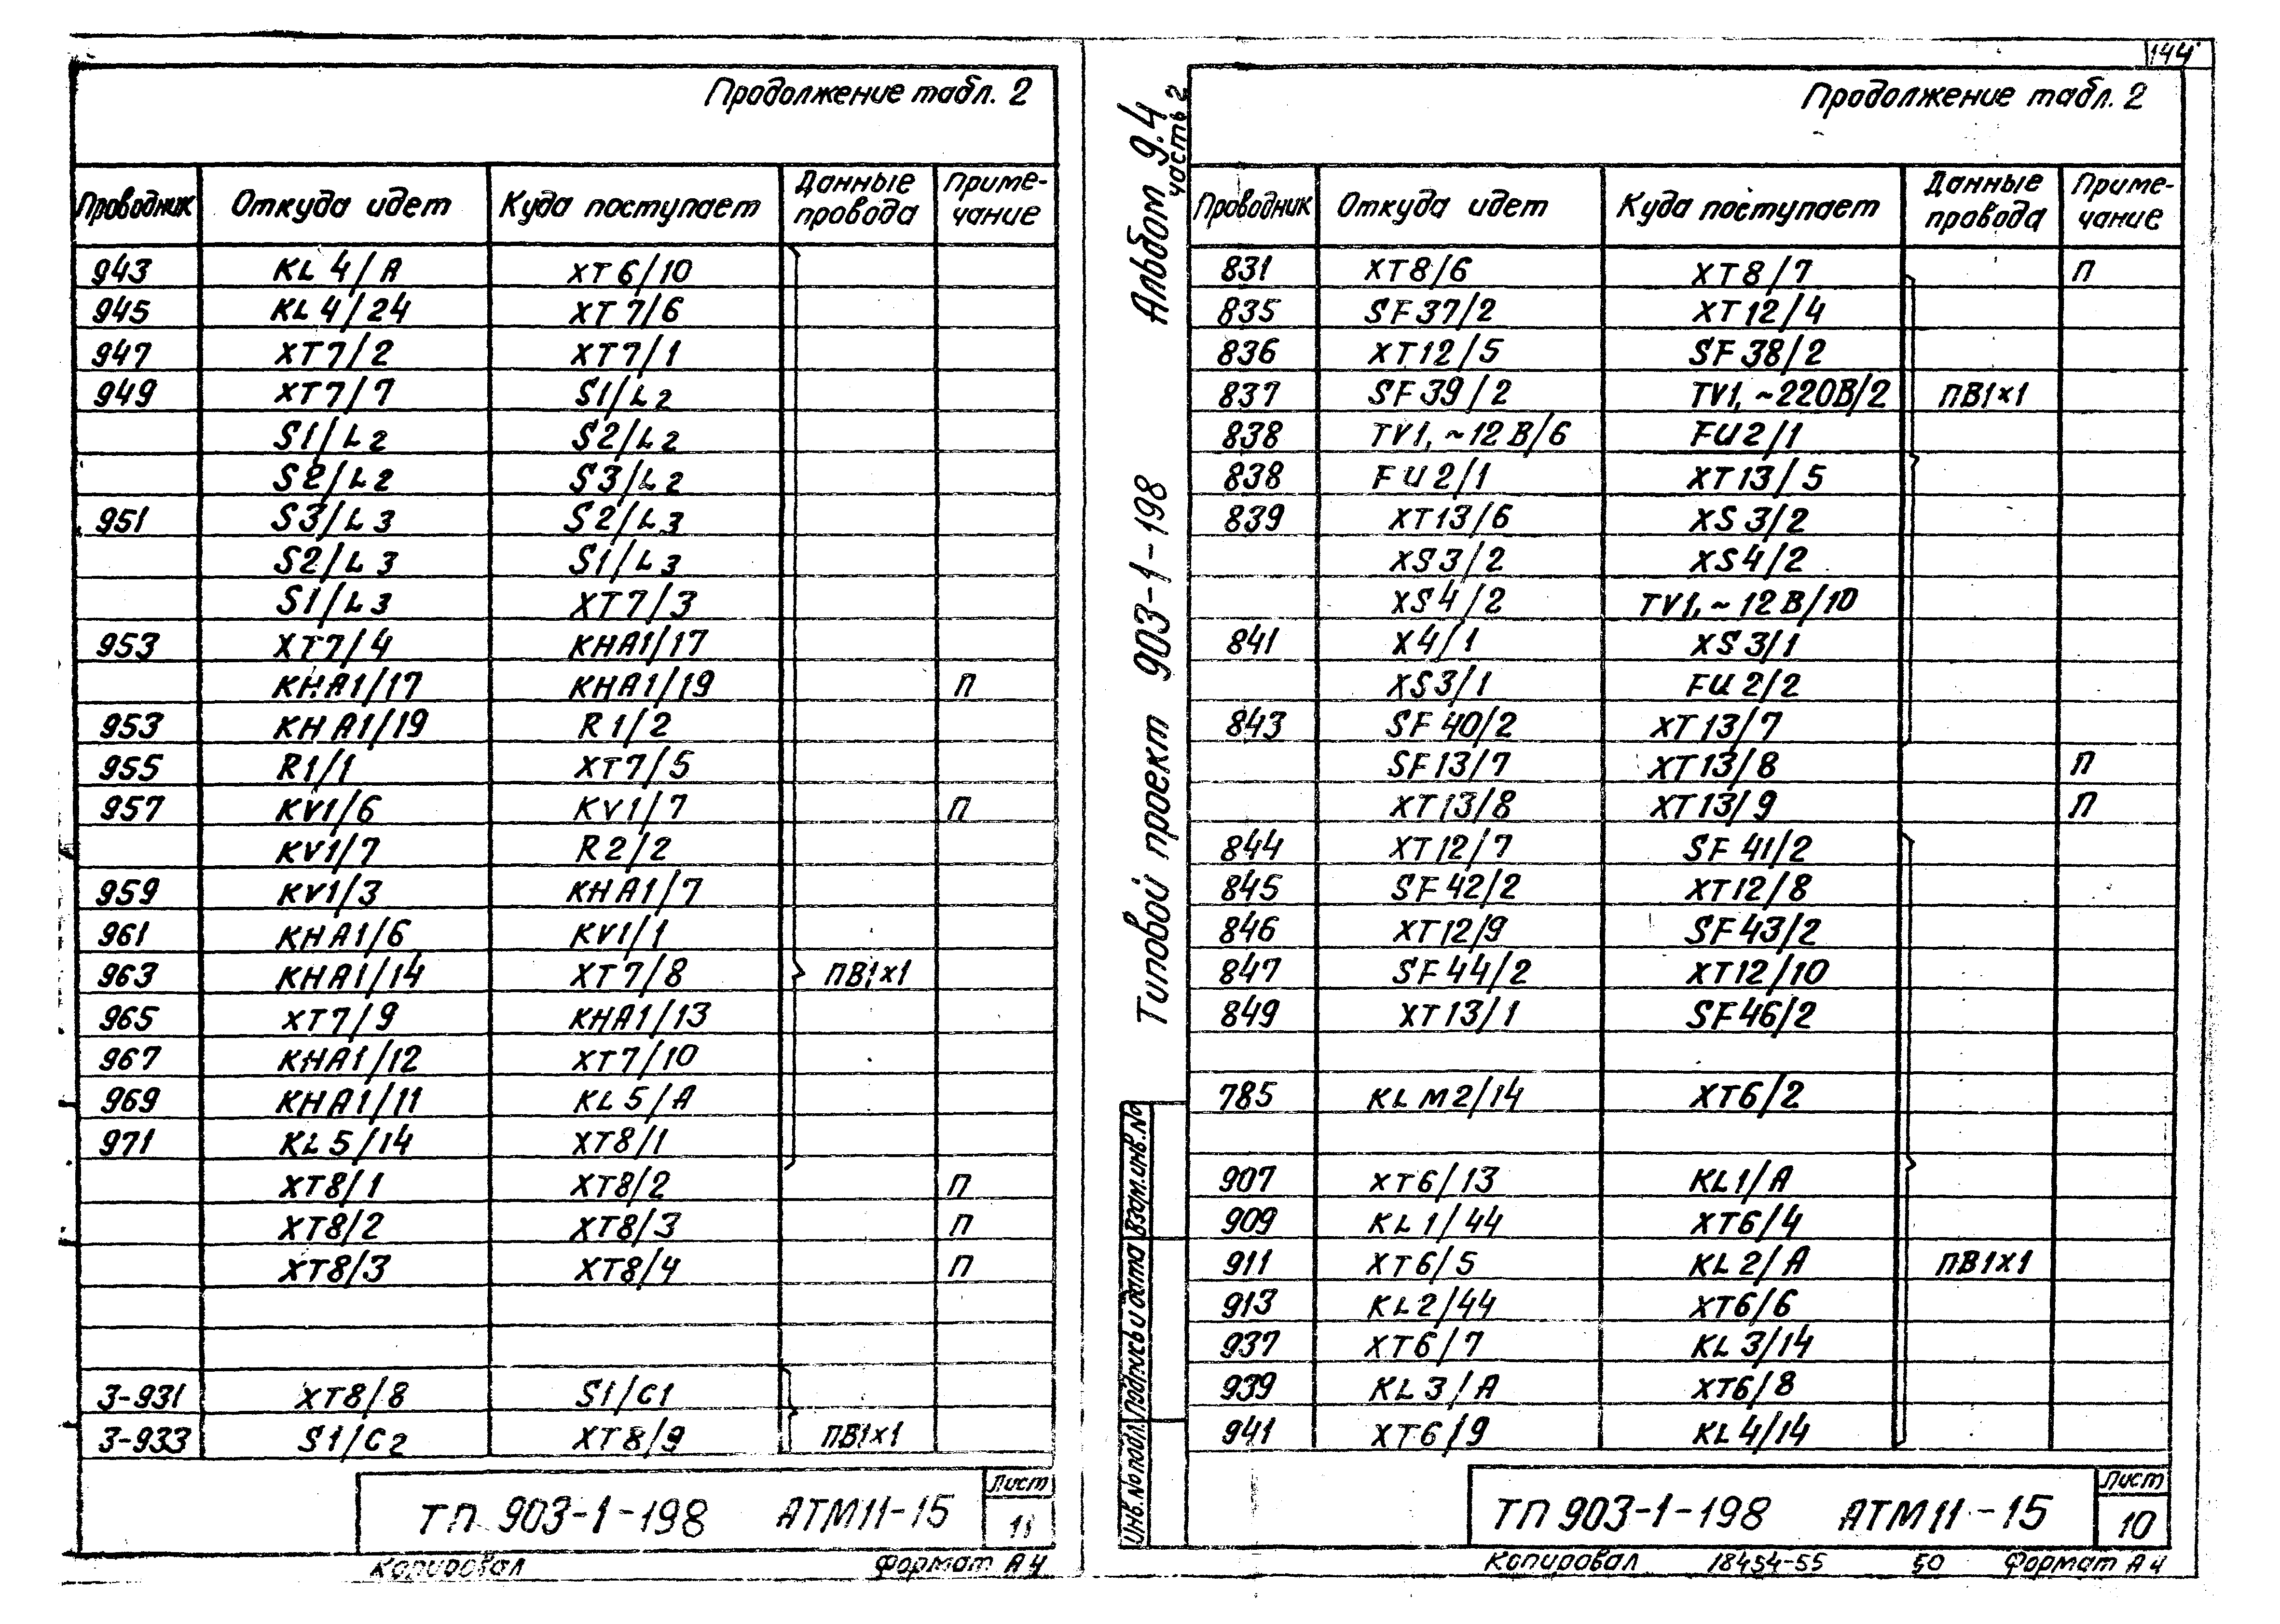 Продолжение табл. 2
Проводник Откуда идет Куда поступает Данные провода Приме-чание
943 KL4/A XT6/10
945 KL4/24 XT7/6
947 XT7/2 XT7/1
949 XT7/7 S1/L2
S1/L2 S2/L2
S2/L2 S3/L2
951 S3/L3 S2/L3
S2/L3 S1/L3
S1/L3 XT7/3
953 XT7/4 KHA1/17
KHA1/17 KHA1/19 П
953 KHA1/19 R1/2
955 R1/1 XT7/5
957 KV1/6 KV1/7 П
KV1/7 R2/2
959 KV1/3 KHA1/7
961 KHA1/6 KV1/1
963 KHA1/14 XT7/8 ПВ1х1
965 XT7/9 KHA1/13
967 KHA1/12 XT7/10
969 KHA1/11 KL5/A
971 KL5/14 XT8/1
XT8/1 XT8/2 П
XT8/2 XT8/3 П
XT8/3 XT8/4 П
3-931 XT8/8 S1/C1
3-933 S1/C2 XT8/9 ПВ1х1
ТП 903-1-198 АТМ11-15
Лист
11
Копировал Формат А4
144
Альбом 9.4
часть 2
Типовой проект 903-1-198
Продолжение табл. 2
Проводник Откуда идет Куда поступает Данные провода Приме-чание
831 XT8/6 XT8/7 П
835 SF37/2 XT12/4
836 XT12/5 SF38/2
837 SF39/2 TV1, ~220В/2 ПВ1х1
838 TV1, ~12В/6 FU2/1
838 FU2/1 XT13/5
839 XT13/6 XS3/2
XS3/2 XS4/2
XS4/2 TV1, ~12В/10
841 X4/1 XS3/1
XS3/1 FU2/2
843 SF40/2 XT13/7
SF13/7 XT13/8 П
XT13/8 XT13/9 П
844 XT12/7 SF41/2
845 SF42/2 XT12/8
846 XT12/9 SF43/2
847 SF44/2 XT12/10
849 XT13/1 SF46/2
785 KLM2/14 XT6/2
907 XT6/13 KL1/A
909 KL1/44 XT6/4
911 XT6/5 KL2/A ПВ1х1
913 KL2/44 XT6/6
937 XT6/7 KL3/14
939 KL3/A XT6/8
941 XT6/9 KL4/14
Инв.№ подл. Подпись и дата Взам.инв.№
ТП 903-1-198 АТМ11-15
Лист
10
Копировал 18454-55 50 Формат А4